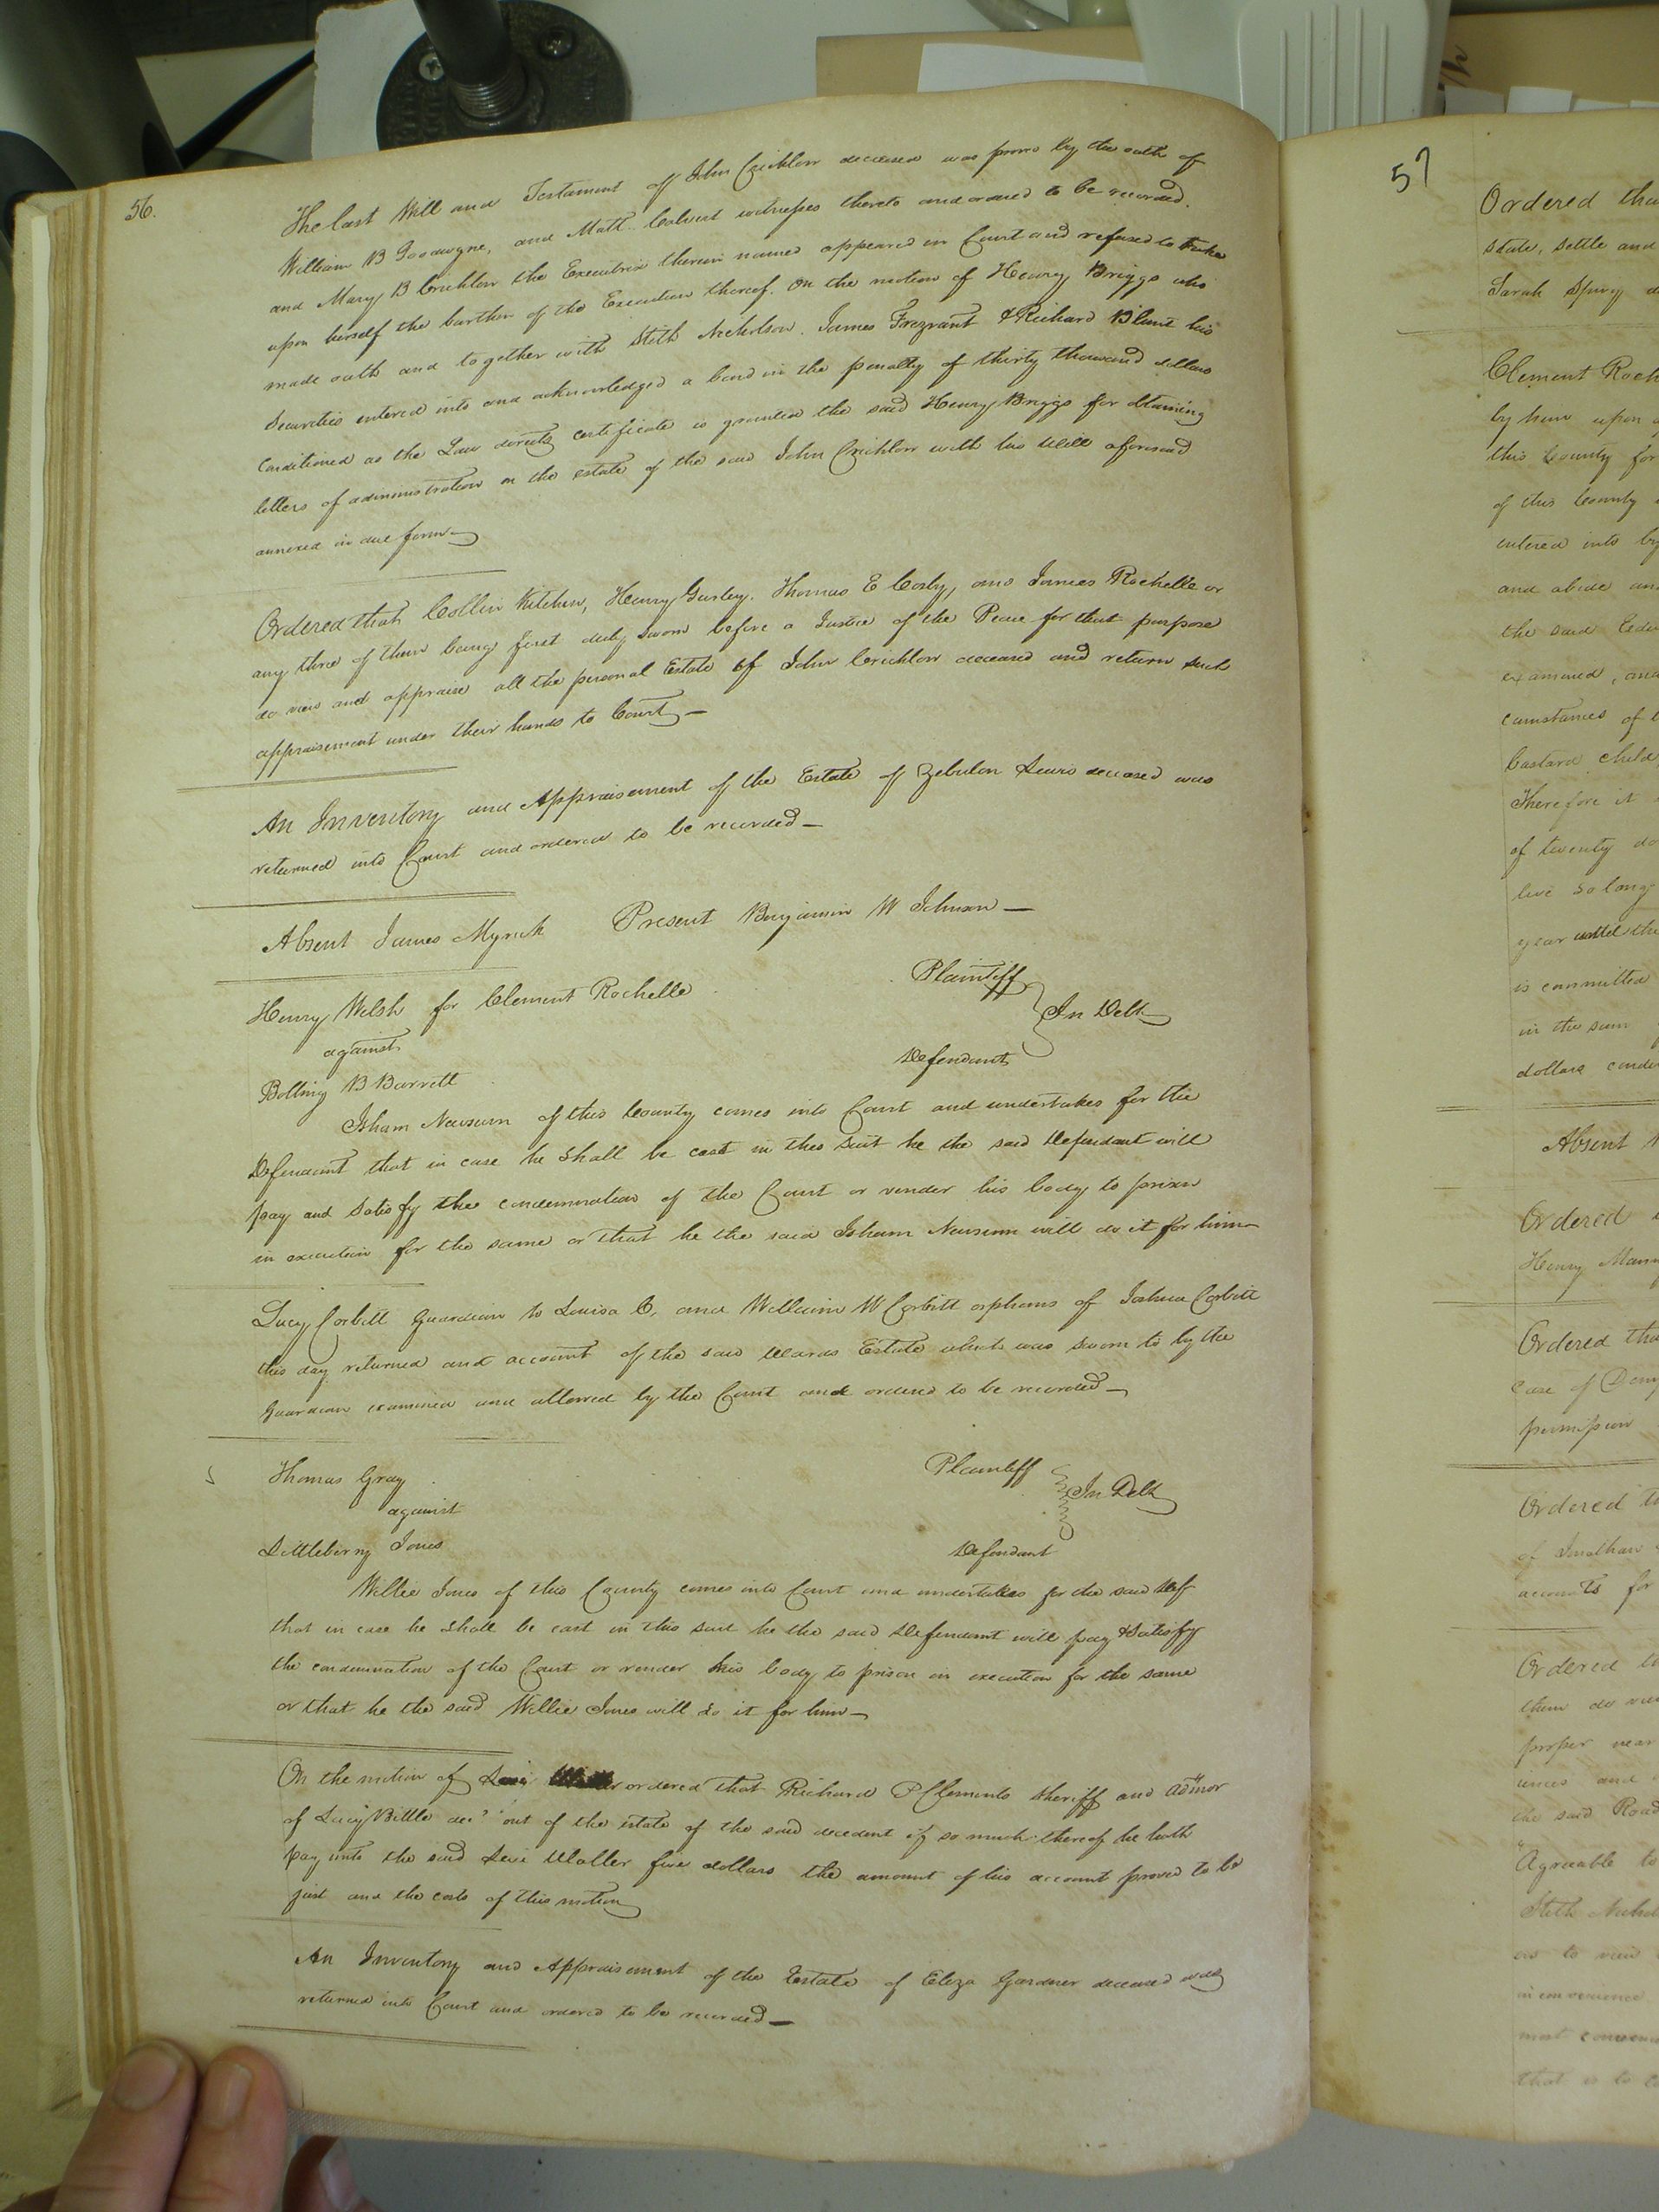 56.
The last Will and Testament of John Crichlow deceased was prove by the oath of
William B Goodwyne, and Matt. Calvert witnesses thereto and ordered to be recorded.
and Mary B Crichlow the Executrix therein named appeared in Court and refused to take
upon herself the burthen of the Execution thereof. On the motion of Henry Briggs who
made oath and together with Stith Nicholson. James Trezvant & Richard Blunt his
Securities entered into and acknowledged a bond in the penalty of thirty thousand dollars
Conditioned as the Law directs certificate is granted the said Henry Briggs for obtaining
letters of administration on the estate of the said John Crichlow with his Will aforesaid
annexed in due form—
Ordered that Collin Kitchen, Henry Gurley. Thomas E Cosby, and James Rochelle or
any three of them being first duly sworn before a Justice of the Peace for that purpose
do view and appraise all the personal Estate of John Crichlow deceased and return such
appraisement under their hands to Court—
An Inventory and Appraisement of the Estate of Zebulon Lewis deceased was
returned into Court and ordered to be recorded—
Absent James Myrick Present Benjamin W Johnson—
Henry Welsh for Clement Rochelle Plaintiff
against In Debt
Bolling B Barrett Defendant
Isham Newsum of this County comes into Court and undertakes for the
Defendant that in case he shall be cast in this suit he the said Defendant will
pay and satisfy the condemnation of the Court or render his body to prison
in execution for the same or that he the said Isham Newsum will do it for him
Lucy Corbitt Guardian to Louisa C, and William W Corbitt orphans of Joshua Corbitt
this day returned and account of the said Wards Estate which was sworn to by the
Guardian examined and allowed by the Court and ordered to be recorded—
Thomas Gray Plaintiff
against In Debt
Littleberry Jones Defendant
Willie Jones of this County comes into Court and undertakes for the said Deft
that in case he shall be cast in this suit he the said Defendant will pay & satisfy
the condemnation of the Court or render his body to prison in execution for the same
or that he the said Willie Jones will do it for him—
On the motion of Levi ordered that Richard P Clements sheriff and admor
of Lucy Bittle decd out of the estate of the said decedent if so much thereof he hath
pay unto the said Levi Waller five dollars the amount of his account proved to be
just and the costs of this motion
An Inventory and Appraisement of the Estate of Eliza Gardner deceased was
returned into Court and ordered to be recorded—
57
Ordered tha
state, settle and
Sarah Spivy
Clement Roch
by him upon
this County for
of this County
entered into by
and abide
the said
examined, and
cumstances of
bastard child
Therefore it
of twenty do
live so long
year until the
is committed
in the sum
dollars condi
Absent
Ordered
Henry Mann
Ordered tha
Case of
permission
Ordered
of Jonathan
accounts for
Ordered
them do view
proper near
and
the said Road
Agreeable to
Stith Nichol
to view
inconvenience
most conveni
that is to